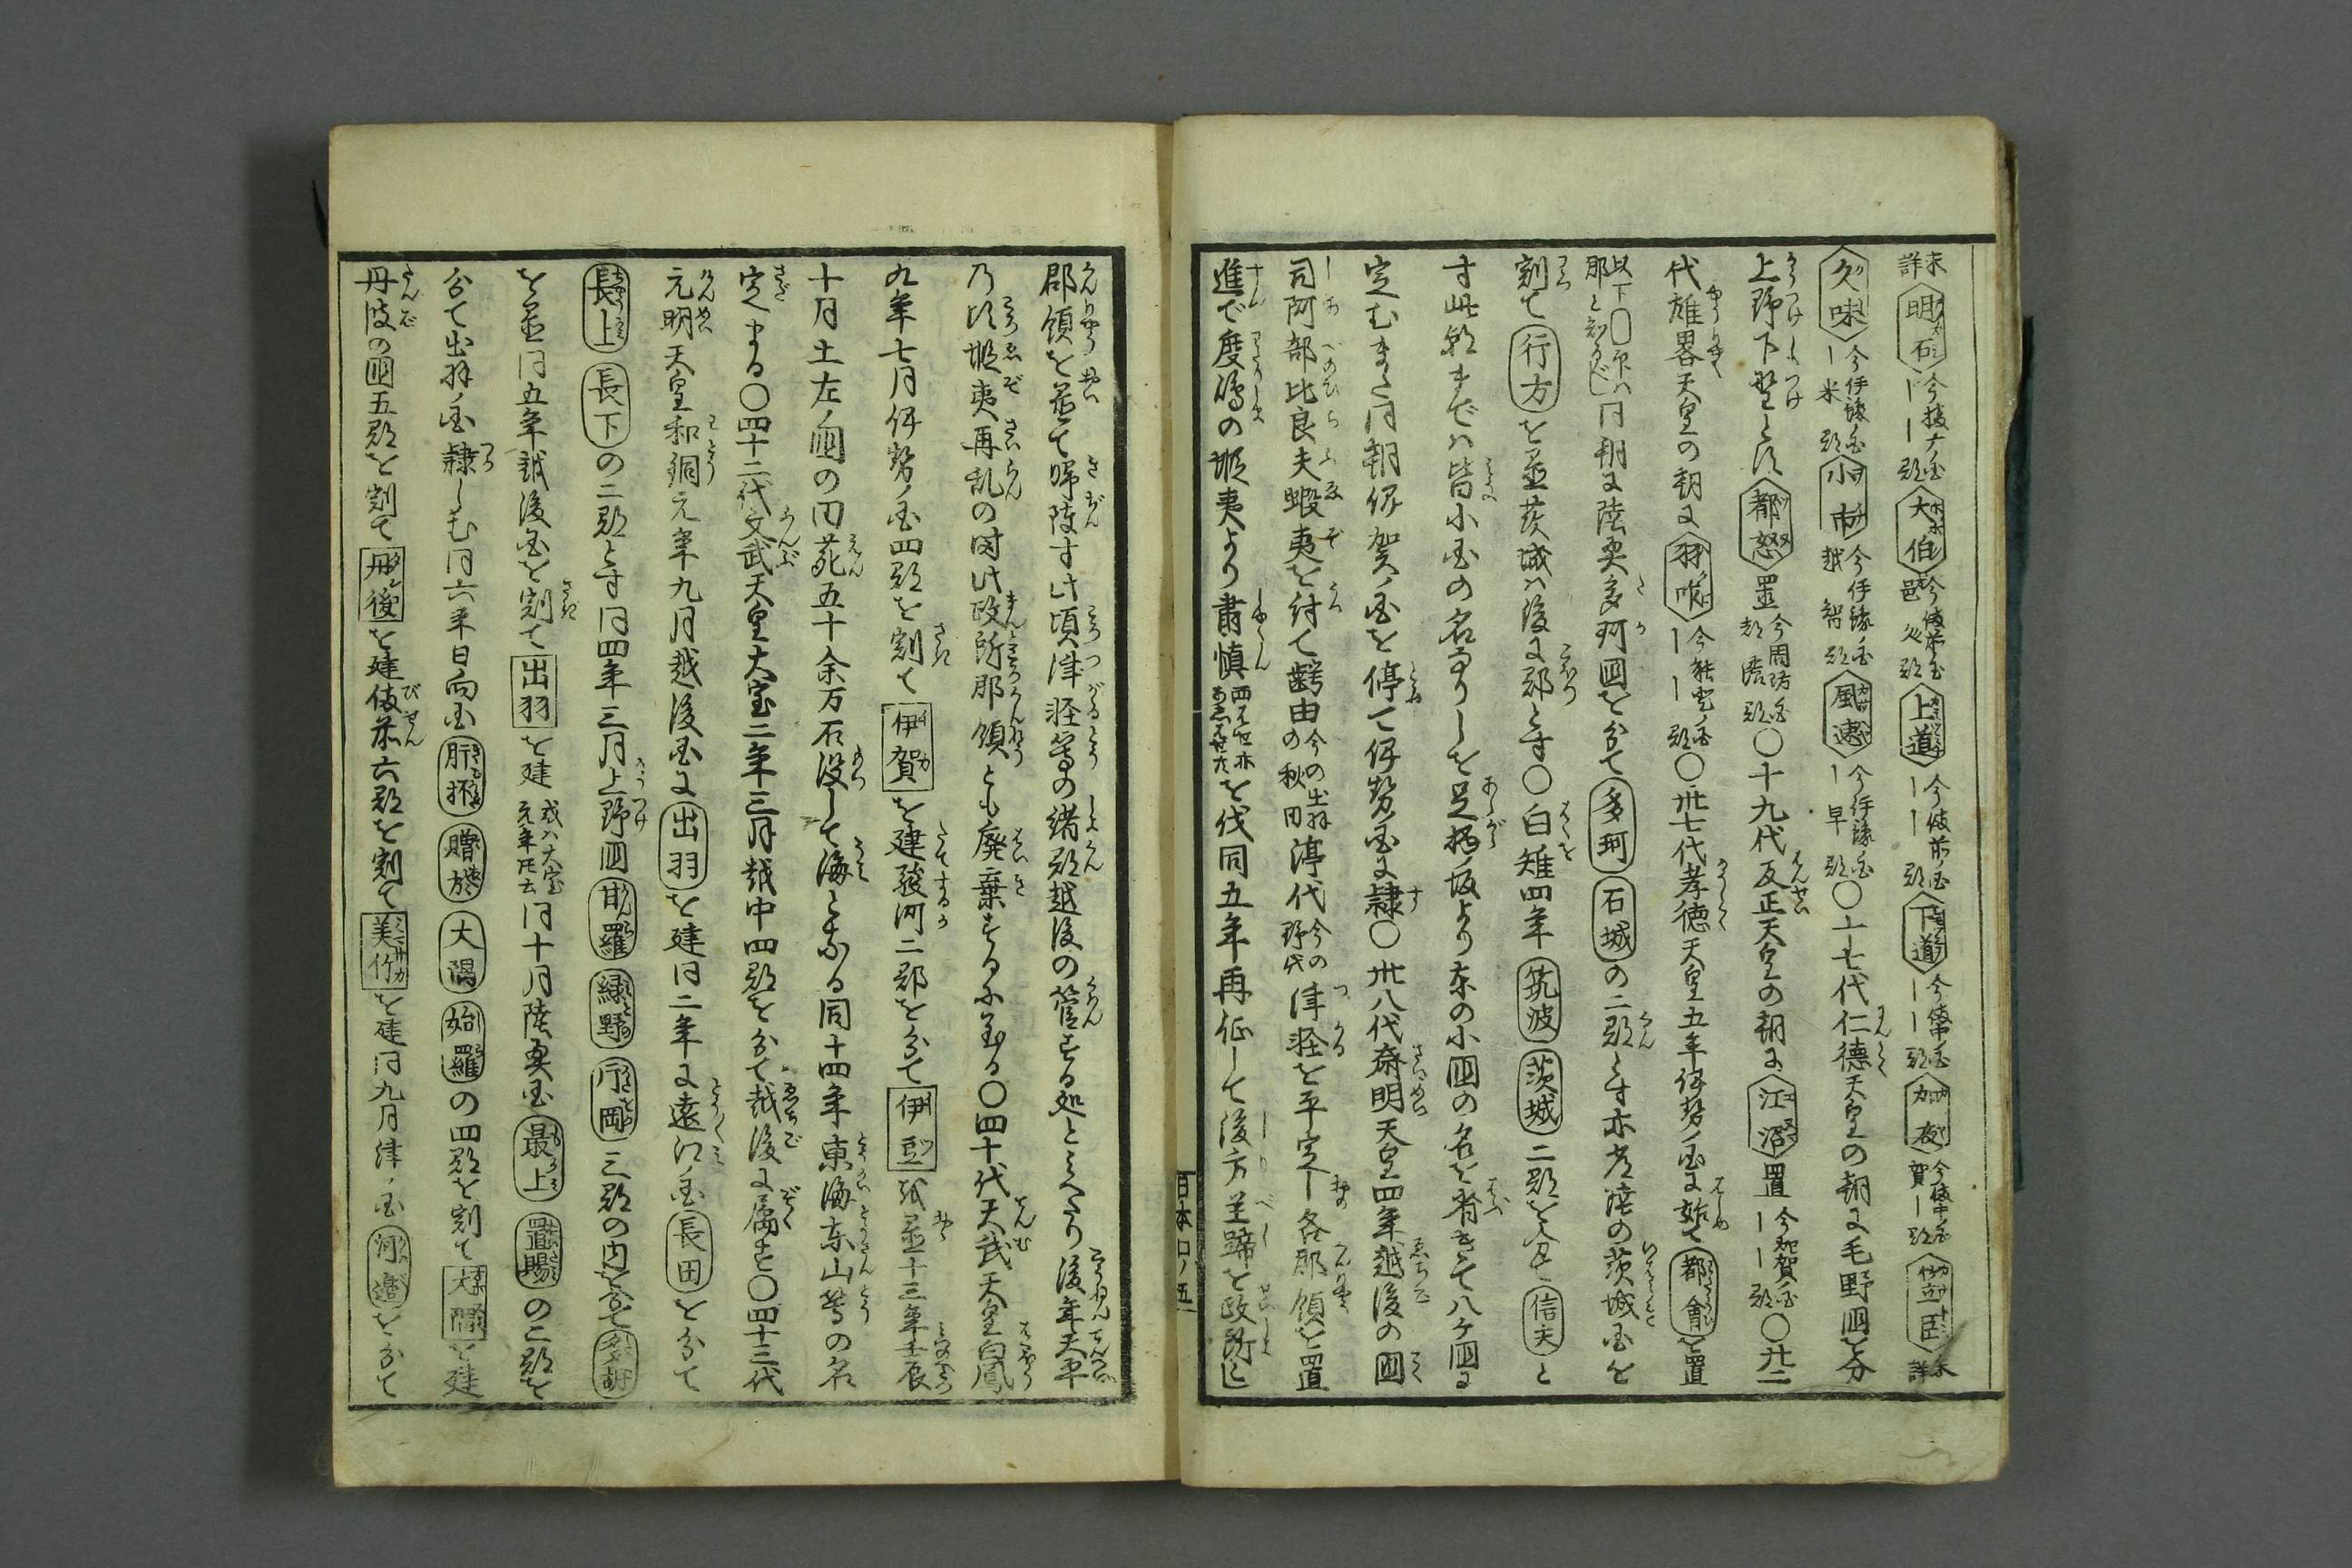 未詳 明石 今播广ノ国 ーー郡 大伯 今備前ノ国 邑久郡 上道 今備前ノ国 ーー郡 下道 今備中ノ国 ーー郡 加夜 今備中ノ国 賀ー郡 未詳
久味 今伊豫ノ国 ー米郡 小市 今伊豫ノ国 越智郡 風速 今伊豫ノ国 ー早郡 〇十七代仁徳天皇の朝に毛野国を分
上野下野とす 都怒 置 今周防ノ国 都濃郡 〇十九代反正天皇の朝に 江沼 置 今加賀ノ国 ーー郡 〇廿二
代雄畧天皇の朝に 羽咋 今能登ノ国 ーー郡 〇卅七代孝徳天皇五年伊勢ノ国に始て 都會 を置
以下〇印ハ郡と知るべし 同朝に陸奥多珂国を分て 多珂 石城 の二郡とす亦常陸の茨城国を
割て 行方 を置茨城ハ後に郡とす〇白雉四年 筑波 茨城 二郡を 信夫 と
す此朝までハ皆小国の名なりしを足柄ノ坂より東の小国の名を省きて八ケ国に
定むまた同朝伊賀ノ国を停て伊勢国に隷〇卅八代斎明天皇四年越後の国
司阿部比良夫蝦夷を討て齶田 今の出羽の秋田 渟代 今の野代 津軽を平定し各郡領を置
進で度嶋の蝦夷より肅慎 を伐同五年再征して後方羊蹄を政所とし
日本 口ノ五
郡領を並て帰陣す此頃津軽等の諸郡越後の管する処とみへたり後年天平
乃頃蝦夷再乱の時此政所郡領とも廃棄するに至る〇四十代天武天皇白鳳
九年七月伊勢ノ国四郡を割て 伊賀 を建駿河二郡を分て 伊豆 を置十三年壬辰
十月土左ノ国の田苑五十余万石没して海となる同十四年東海東山等の名
定まる〇四十二代文武天皇大宝二年三月越中四郡を分て越後に属す〇四十三代
元明天皇和銅元年九月越後国に 出羽 を建同二年に遠江ノ国 長田 を分て
長上 長下 の二郡とす同四年三月上野国 甘羅 緑野 片岡 三郡の内を分て 多胡
を置同五年越後国を割て 出羽 を建 或ハ大宝元年ニ 同十月陸奥国 最上 置賜 の二郡を
分て出羽ノ国隷しむ同六年日向国 肝坏 贈於 大隅 姶羅 の四郡を割て 大隅 を建
丹波の国五郡を割て 丹後 を建備前六郡を割て 美作 を建同九月津ノ国 河邉 を分て